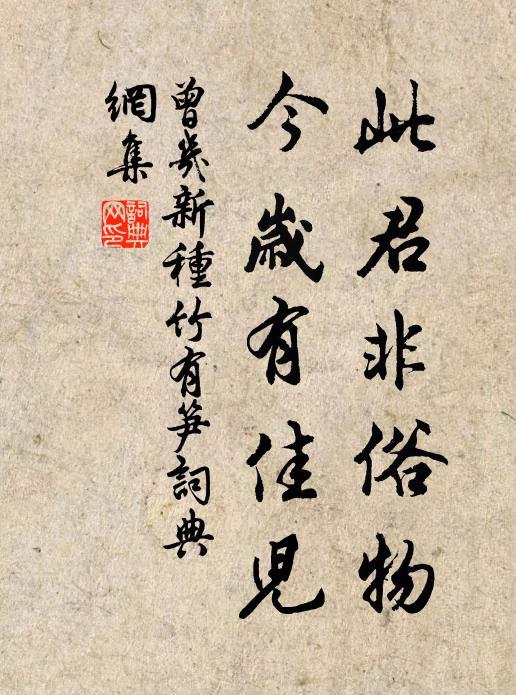 此君非俗物
今歲有佳兒
曾幾新種竹有笋詞典
網集
詞典
网印